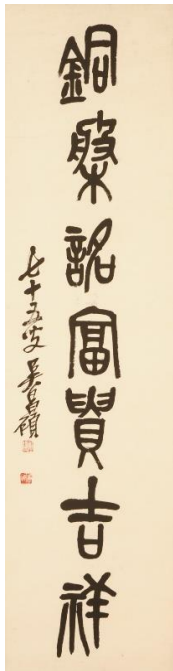 銅槃銘富貴吉祥
七十五叟吳昌碩